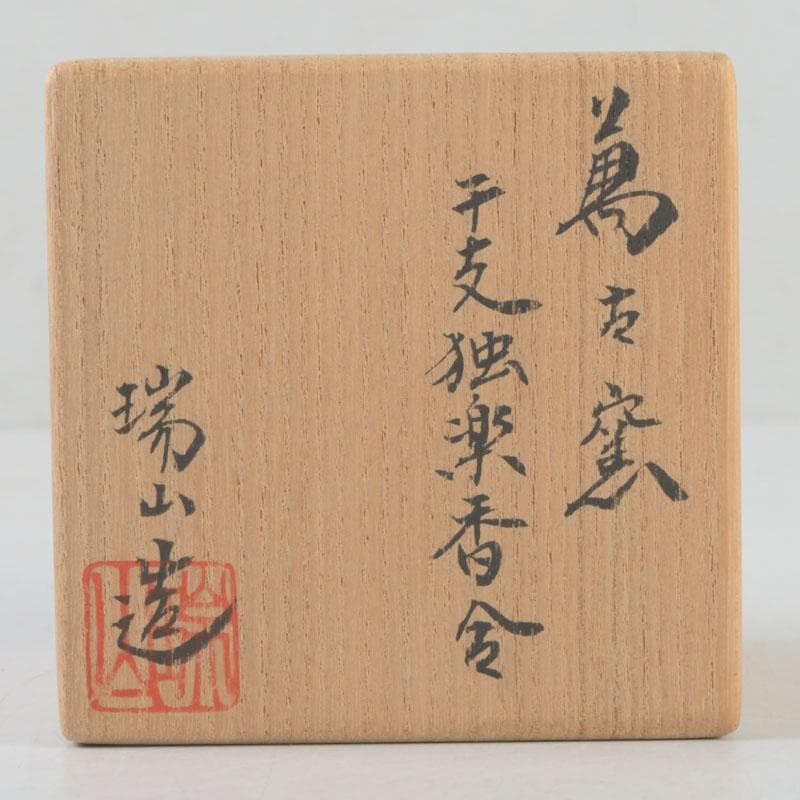 萬古窯
干支独楽香合
瑞山造